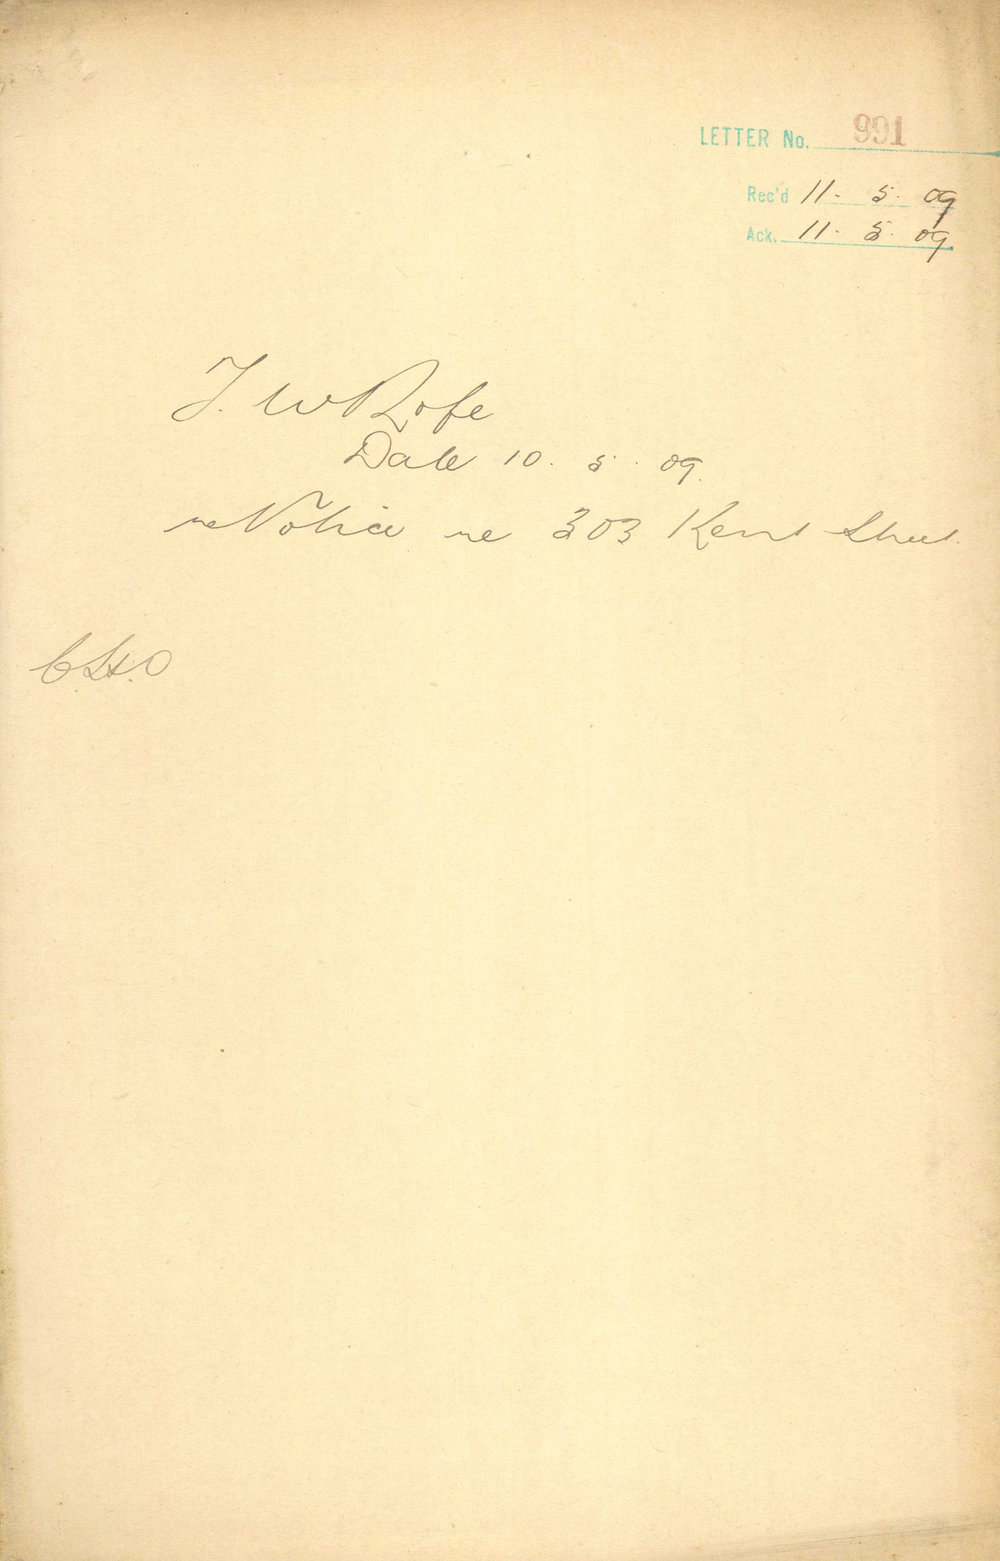 LETTER No. 991
Rec'd 11. 5. 09
Ack. 11. 5. 09.
T. W Rofe
Date 10. 5. 09.
re Notice re 303 Kent Street.
C.H.O